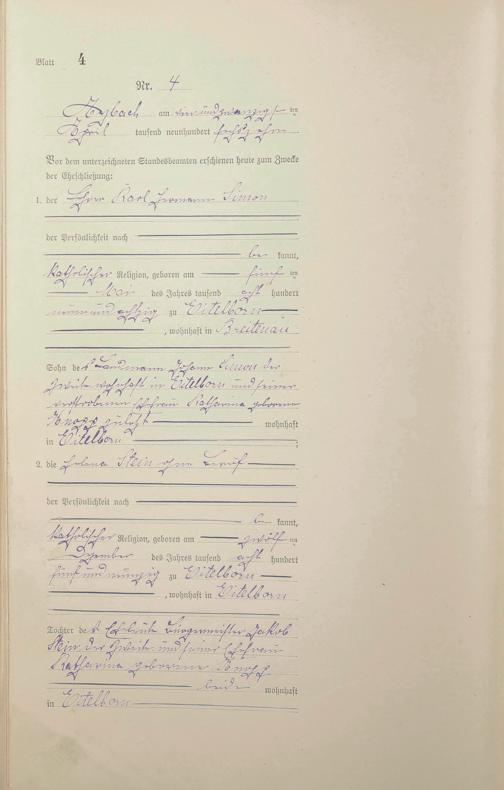 Blatt 4
Nr. 4
Arzbach am vierundzwanzigsten
April tausend neunhundert sechszehn
Vor dem unterzeichneten Standesbeamten erschienen heute zum Zwecke
der Eheschließung:
1. der Karl Hermann Simon
der Persönlichkeit nach
be kannt,
katholischer Religion, geboren am fünf ten
Mai des Jahres tausend acht hundert
neunundachtzig zu Eitelborn
, wohnhaft in Breitenau
Sohn des Landmann Johann Simon der
Zweite wohnhaft in Eitelborn und seiner
verstorbenen Ehefrau Katharina geborene
Knopp zuletzt wohnhaft
in Eitelborn ;
2. die Helena Stein ohne Beruf
der Persönlichkeit nach
be kannt,
katholischer Religion, geboren am zwölf ten
Dezember des Jahres tausend acht hundert
fünf und neunzig zu Eitelborn
, wohnhaft in Eitelborn
Tochter der Eheleute Bürgermeister Jakob
Stein der Zweite und seiner Ehefrau
Katharina geborene Knopp
beide wohnhaft
in Eitelborn